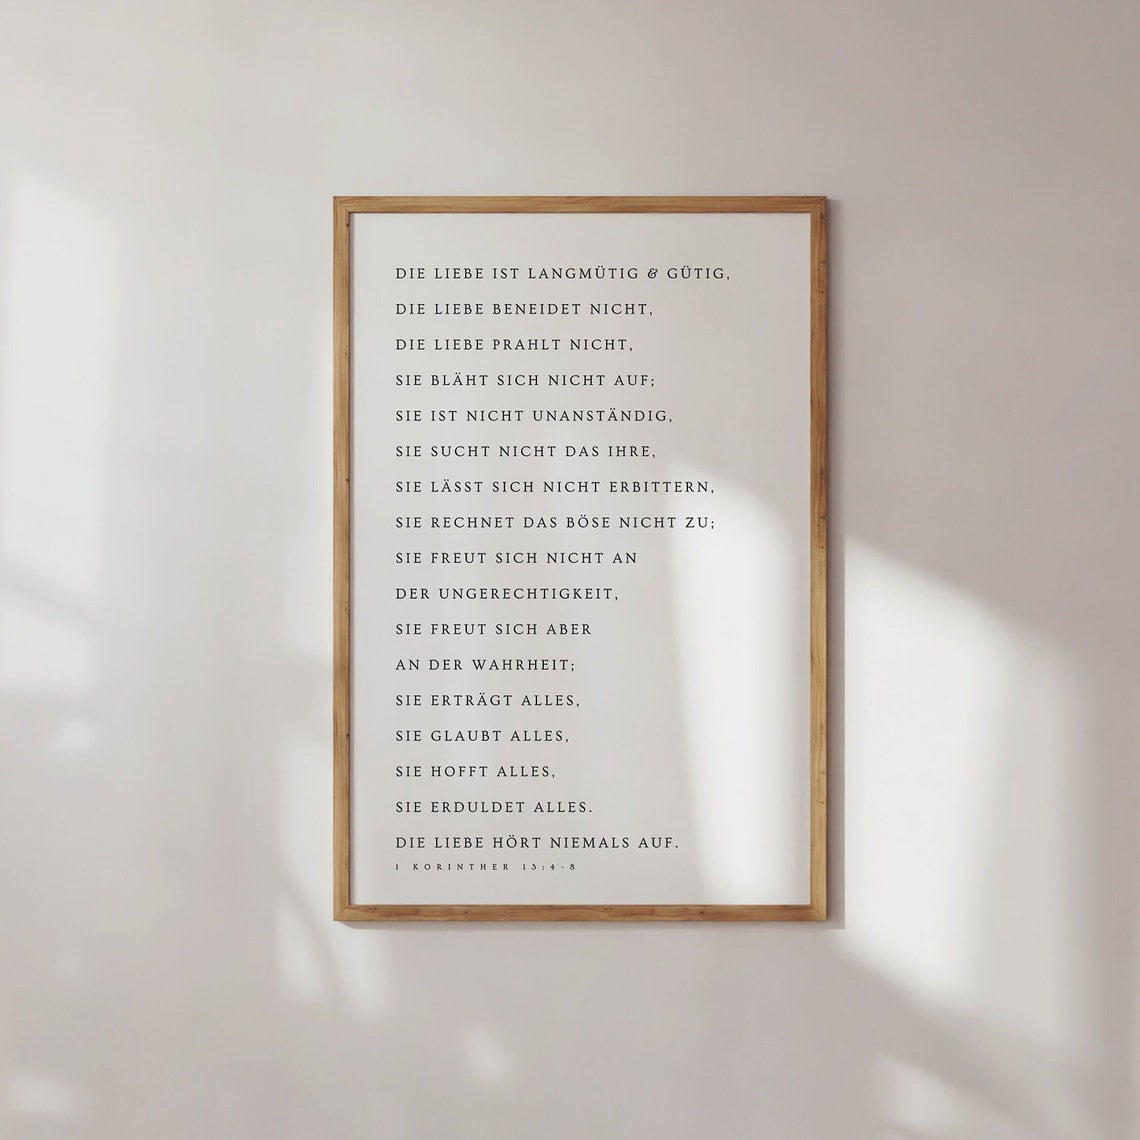 DIE LIEBE IST LANGMÜTIG & GÜTIG,
DIE LIEBE BENEIDET NICHT,
DIE LIEBE PRAHLT NICHT,
SIE BLÄHT SICH NICHT AUF;
SIE IST NICHT UNANSTÄNDIG,
SIE SUCHT NICHT DAS IHRE,
SIE LÄSST SICH NICHT ERBITTERN,
SIE RECHNET DAS BÖSE NICHT ZU;
SIE FREUT SICH NICHT AN
DER UNGERECHTIGKEIT,
SIE FREUT SICH ABER
AN DER WAHRHEIT;
SIE ERTRÄGT ALLES,
SIE GLAUBT ALLES,
SIE HOFFT ALLES,
SIE ERDULDET ALLES.
DIE LIEBE HÖRT NIEMALS AUF.
1 KORINTHER 13:4-8